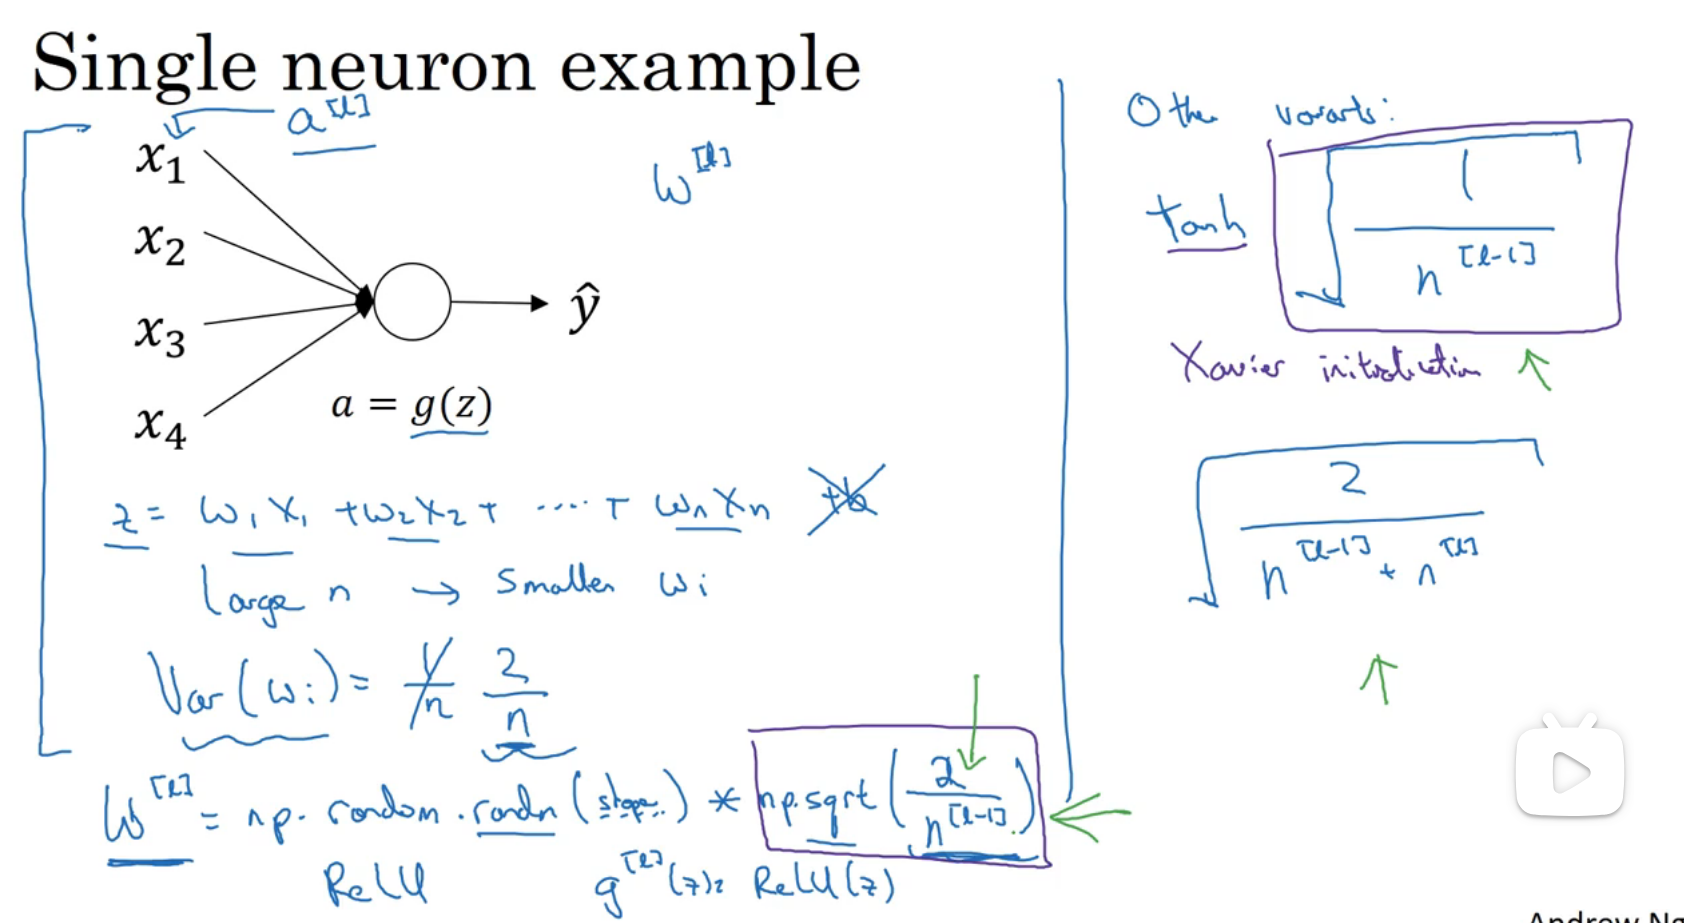 Single neuron example
a^[l]
x₁
w^[l]
x₂
x₃
ŷ
x₄
a = g(z)
z = w₁x₁ + w₂x₂ + ..... + wₙxₙ +b
Large n → Smaller wᵢ
Var(wᵢ) = 1/n 2/n
W^[l] = np.random.randn(shape..) * np.sqrt(2/n^[l-1])
ReLU g^[l](z) = ReLU(z)
Other variants:
tanh √(1/n^[l-1])
Xavier initialization
√(2/(n^[l-1] + n^[l]))